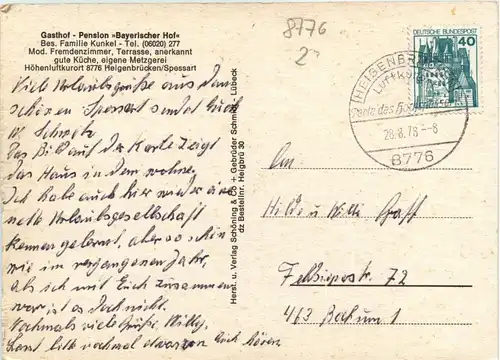 Gasthof - Pension »Bayerischer Hof«
Bes. Familie Kunkel - Tel. (06020) 277
Mod. Fremdenzimmer, Terrasse, anerkannt
gute Küche, eigene Metzgerei
Höhenluftkurort 8776 Heigenbrücken/Spessart
Viele Urlaubsgrüße aus dem
schönen Spessart sendet Euch
W. Schmetz
Das Bild auf der Karte zeigt
das Haus in dem wohne.
Ich habe auch hier wieder eine
nette Urlaubsgesellschaft
kennen gelernt, aber so schön
wie im vergangenen Jahr,
als ich mit Euch zusammen
war ist es doch nicht.
Nochmals viele Grüße, Willy.
Lasst bitte nochmal etwas von Euch hören.
Herst. u. Verlag Schöning & Co + Gebrüder Schmidt, Lübeck
dz Bestellnr. Heigbrü 30
8776
2
DEUTSCHE BUNDESPOST
40
HEIGENBRÜCKEN
Luftkurort
Perle des
28.8.78 --8
8776
An
Hilde u Willi Graff
Feldsieperstr. 72
463 Bochum 1